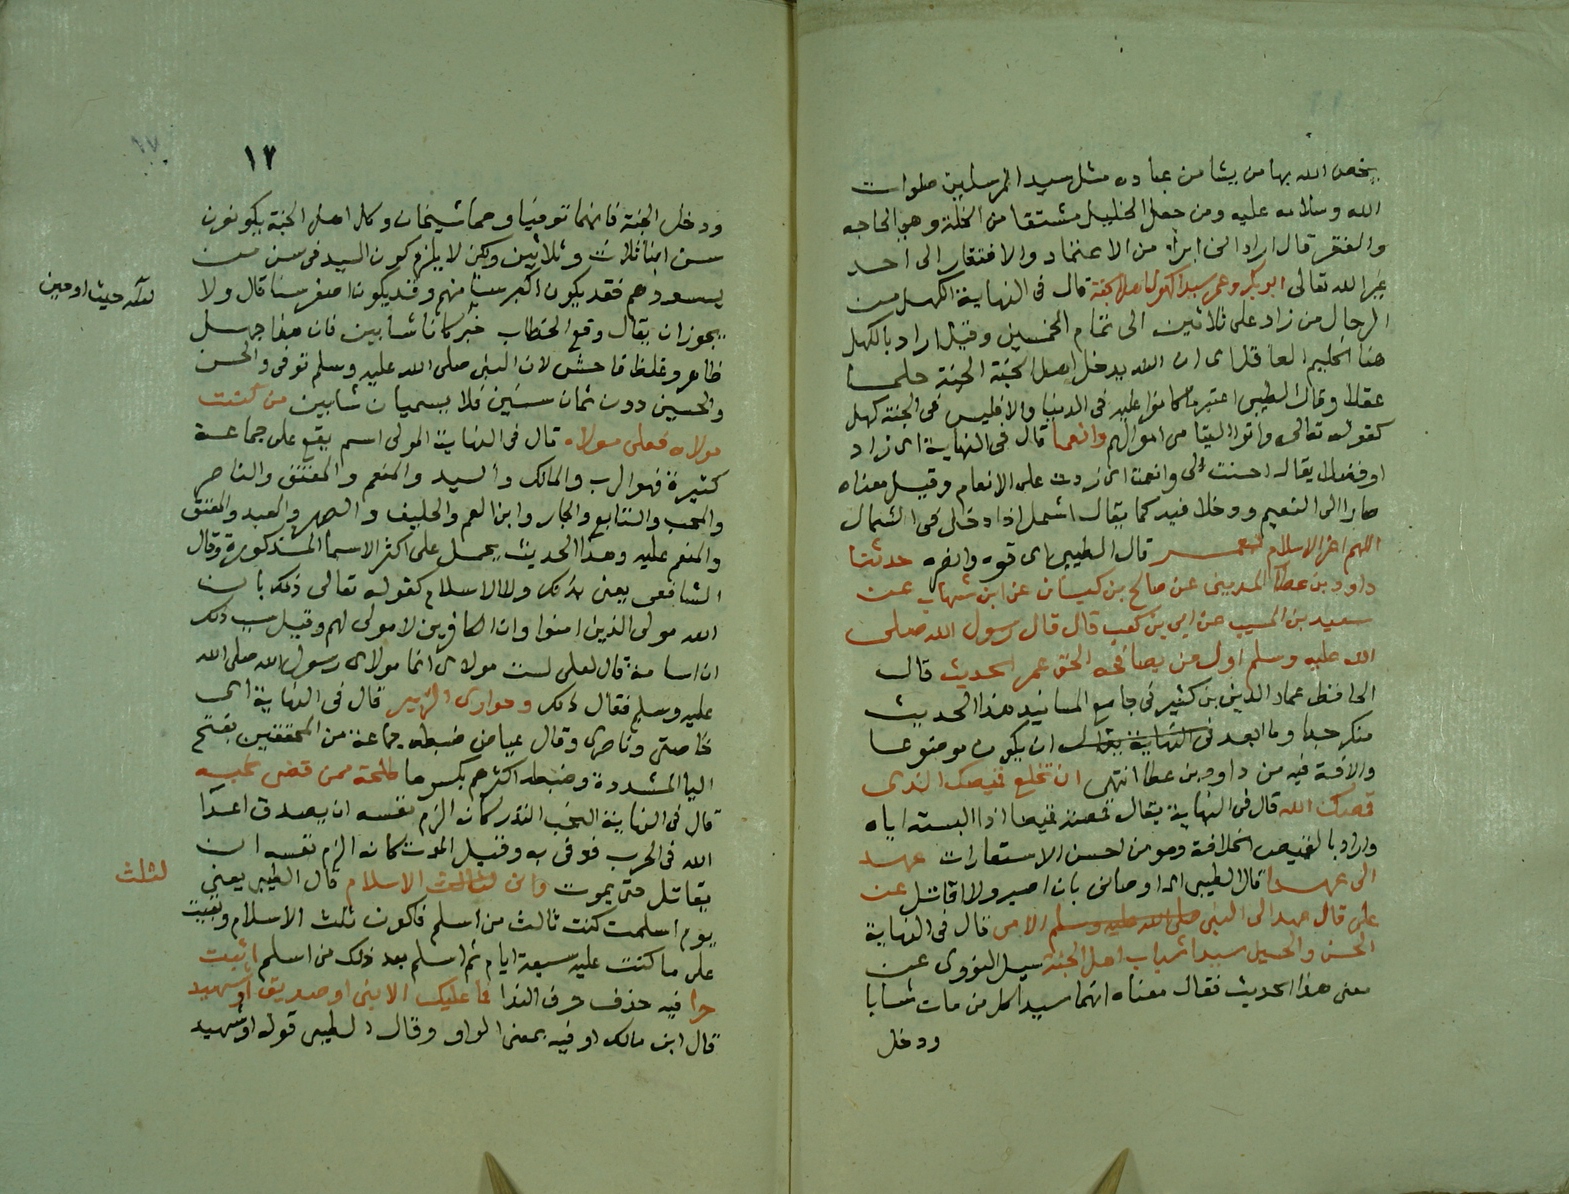 يخص الله بها من يشا من عباده مثل سيد المرسلين صلوات
الله وسلامه عليه ومن جعل الخليل مشتقا من الخلة وهي الحاجه
والفقر قال اراد انى ابرأ من الاعتماد والافتقار الى احد
غير الله تعالى ابو بكر وعمر سيدا كهول اهل الجنة قال فى النهاية الكهل من
الرجال من زاد على ثلاثين الى تمام الخمسين وقيل اراد بالكهل
هنا الحليم العاقل اى ان الله يدخل اهل الجنة الجنة حلما
عقلا وقال الطيبى اعتبر ما كانوا عليه فى الدنيا والا فليس فى الجنة كهل
كقوله تعالى واتوا اليتامى اموالهم وانعما قال فى النهاية اى زاد
او فضلا يقال احسنت الى وانعمت اى زدت على الانعام وقيل معناه
صارا الى النعيم ودخلا فيه كما يقال اشمل اذا دخل فى الشمال
اللهم اعز الاسلام بعمر قال الطيبى اى قوه وانصره حدثنا
داود بن عطا المدينى عن صالح بن كيسان عن ابن شهاب عن
سعيد بن المسيب عن ابى بن كعب قال قال رسول الله صلى
الله عليه وسلم اول من يصافحه الحق عمر الحديث قال
الحافظ عماد الدين بن كثير فى جامع المسانيد هذا الحديث
منكر جدا وما ابعد فى النهاية يقال ان يكون موضوعا
والافة فيه من داود بن عطا انتهى ان تخلع قميصك الذى
قمصك الله قال فى النهاية يقال قمصته قميصا اذا البسته اياه
واراد بالقميص الخلافة وهو من احسن الاستعارات عهد
الى عهدا قال الطيبى اى اوصانى بان اصبر ولا اقاتل عن
على قال عهد الى النبى صلى الله عليه وسلم الامى قال فى النهاية
الحسن والحسين سيدا شباب اهل الجنة سيل النووى عن
معنى هذا الحديث فقال معناه انهما سيدا كل من مات شابا
ودخل
١٢
ودخل الجنة فانهما توفيا وهما شيخان وكل اهل الجنة يكونون
سن ابنا ثلاث وثلاثين ولكن لا يلزم كون السيد فى سن من
يسودهم فقد يكون اكبر سنا منهم وقد يكون اصغر سنا قال ولا
يجوز ان يقال وقع الخطاب حين كانا شابين فان هذا جهل
لعله حيث او حين
ظاهر وغلط فاحش لان النبى صلى الله عليه وسلم توفى والحسن
والحسين دون ثمان سنين فلا يسميان شابين من كنت
مولاه فعلى مولاه قال فى النهاية المولى اسم يقع على جماعة
كثيرة فهو الرب والمالك والسيد والمنعم والمعتق والناصر
والمحب والتابع والجار وابن العم والحليف والصهر والعبد والمعتق
والمنعم عليه وهذا الحديث يحمل على اكثر الاسما المذكورة وقال
الشافعى يعنى بذلك ولا الاسلام كقوله تعالى ذلك بان
الله مولى الذين امنوا وان الكافرين لا مولى لهم وقيل سبب ذلك
ان اسامة قال لعلى لست مولاى انما مولاى رسول الله صلى الله
عليه وسلم فقال ذلك وحوارى الزبير قال فى النهاية اى
خاصتى وناصرى وقال عياض ضبطه جماعة من المحققين بفتح
اليا المشددة وضبطه اكثرهم بكسرها طلحة ممن قضى نحبه
قال فى النهاية النحب النذر كانه الزم نفسه ان يصدق اعدا
الله فى الحرب فوفى به وقيل الموت كانه الزم نفسه ان
يقاتل حتى يموت وانى لثالث الاسلام قال الطيبى يعنى
لثلث
يوم اسلمت كنت ثالث من اسلم فاكون ثلث الاسلام وبقيت
على ما كنت عليه سبعة ايام ثم اسلم بعد ذلك من اسلم اثبت
حرا فيه حذف حرف الندا فما عليك الا نبى او صديق او شهيد
قال ابن مالك او فيه بمعنى الواو وقال الطيبى قوله او شهيد